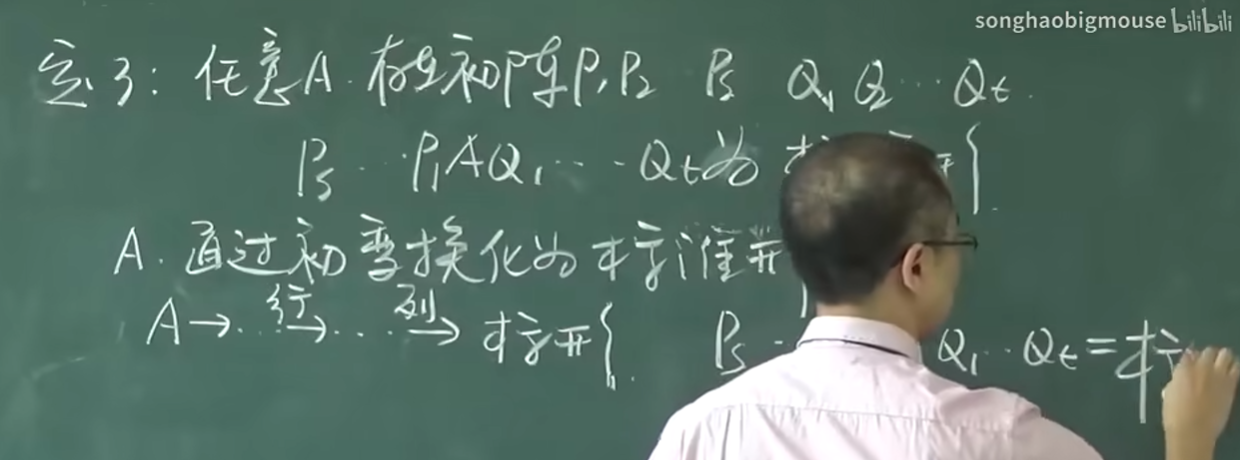 songhaobigmouse bilibili
定3: 任意A. 存在初阵P₁P₂ Pₛ Q₁ Q₂ … Qt.
Pₛ … P₁AQ₁ … Qt为 标 形
A. 通过初变换化为标准形
A→… 行→ … 列→ 标形. Pₛ Q₁ … Qt = 标